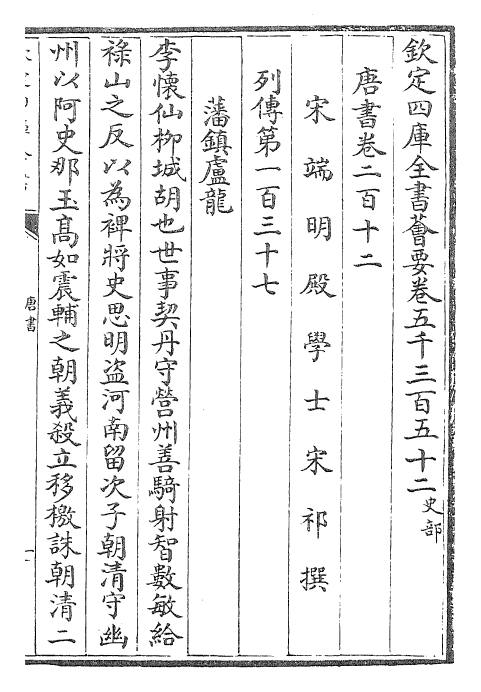 欽定四庫全書薈要卷五千三百五十二史部
唐書卷二百十二
宋端明殿學士宋祁撰
列傳第一百三十七
藩鎮盧龍
李懷仙柳城胡也世事契丹守營州善騎射智數敏給
祿山之反以為裨將史思明盜河南留次子朝清守幽
州以阿史那玉高如震輔之朝義殺立移檄誅朝清二
唐書
一